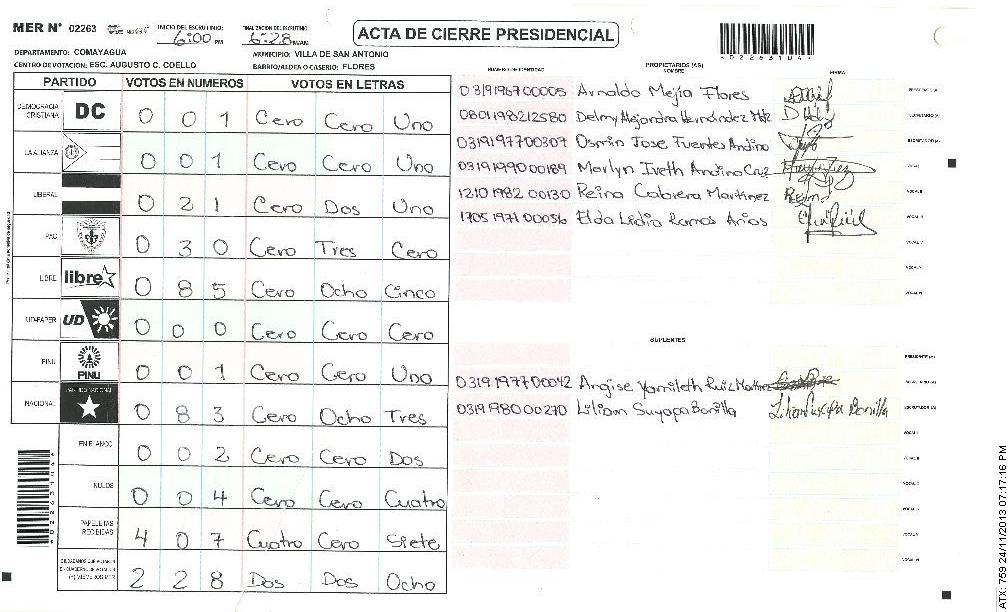 MER N° 02263
INICIO DEL ESCRUTINIO: 6:00 PM
FINALIZACION DEL ESCRUTINIO 6:28 PM/AM
ACTA DE CIERRE PRESIDENCIAL
DEPARTAMENTO: COMAYAGUA
MUNICIPIO: VILLA DE SAN ANTONIO
CENTRO DE VOTACION: ESC. AUGUSTO C. COELLO
BARRIO/ALDEA O CASERIO: FLORES
PARTIDO VOTOS EN NUMEROS VOTOS EN LETRAS
DEMOCRACIA CRISTIANA DC 0 0 1 Cero Cero Uno
LA ALIANZA 0 0 1 Cero Cero Uno
LIBERAL 0 2 1 Cero Dos Uno
PAC 0 3 0 Cero Tres Cero
LIBRE libre 0 8 5 Cero Ocho Cinco
UD-FAPER UD 0 0 0 Cero Cero Cero
PINU PINU 0 0 1 Cero Cero Uno
NACIONAL PARTIDO NACIONAL 0 8 3 Cero Ocho Tres
EN BLANCO 0 0 2 Cero Cero Dos
NULOS 0 0 4 Cero Cero Cuatro
PAPELETAS RECIBIDAS 4 0 7 Cuatro Cero Siete
CIUDADANOS QUE VOTARON EN CUADERNO DE VOTACION (+) MIEMBROS MER 2 2 8 Dos Dos Ocho
NUMERO DE IDENTIDAD PROPIETARIOS (AS) NOMBRE FIRMA
0319196700005 Arnaldo Mejía Flores
0801198212580 Delmy Alejandra Hernández Mtz
0319197700307 Osmin Jose Fuentes Andino
0319199000189 Marlyn Iveth Andino Cruz
1210198200130 Reina Cabrera Martínez Reina
1705197100056 Elda Lidia Ramos Arias
SUPLENTES
0319197700042 Angise Yamileth Ruiz Martinez
0319198000270 Liliam Suyapa Bonilla Lilian Suyapa Bonilla
ATX: 759 24/11/2013 07:17:16 PM